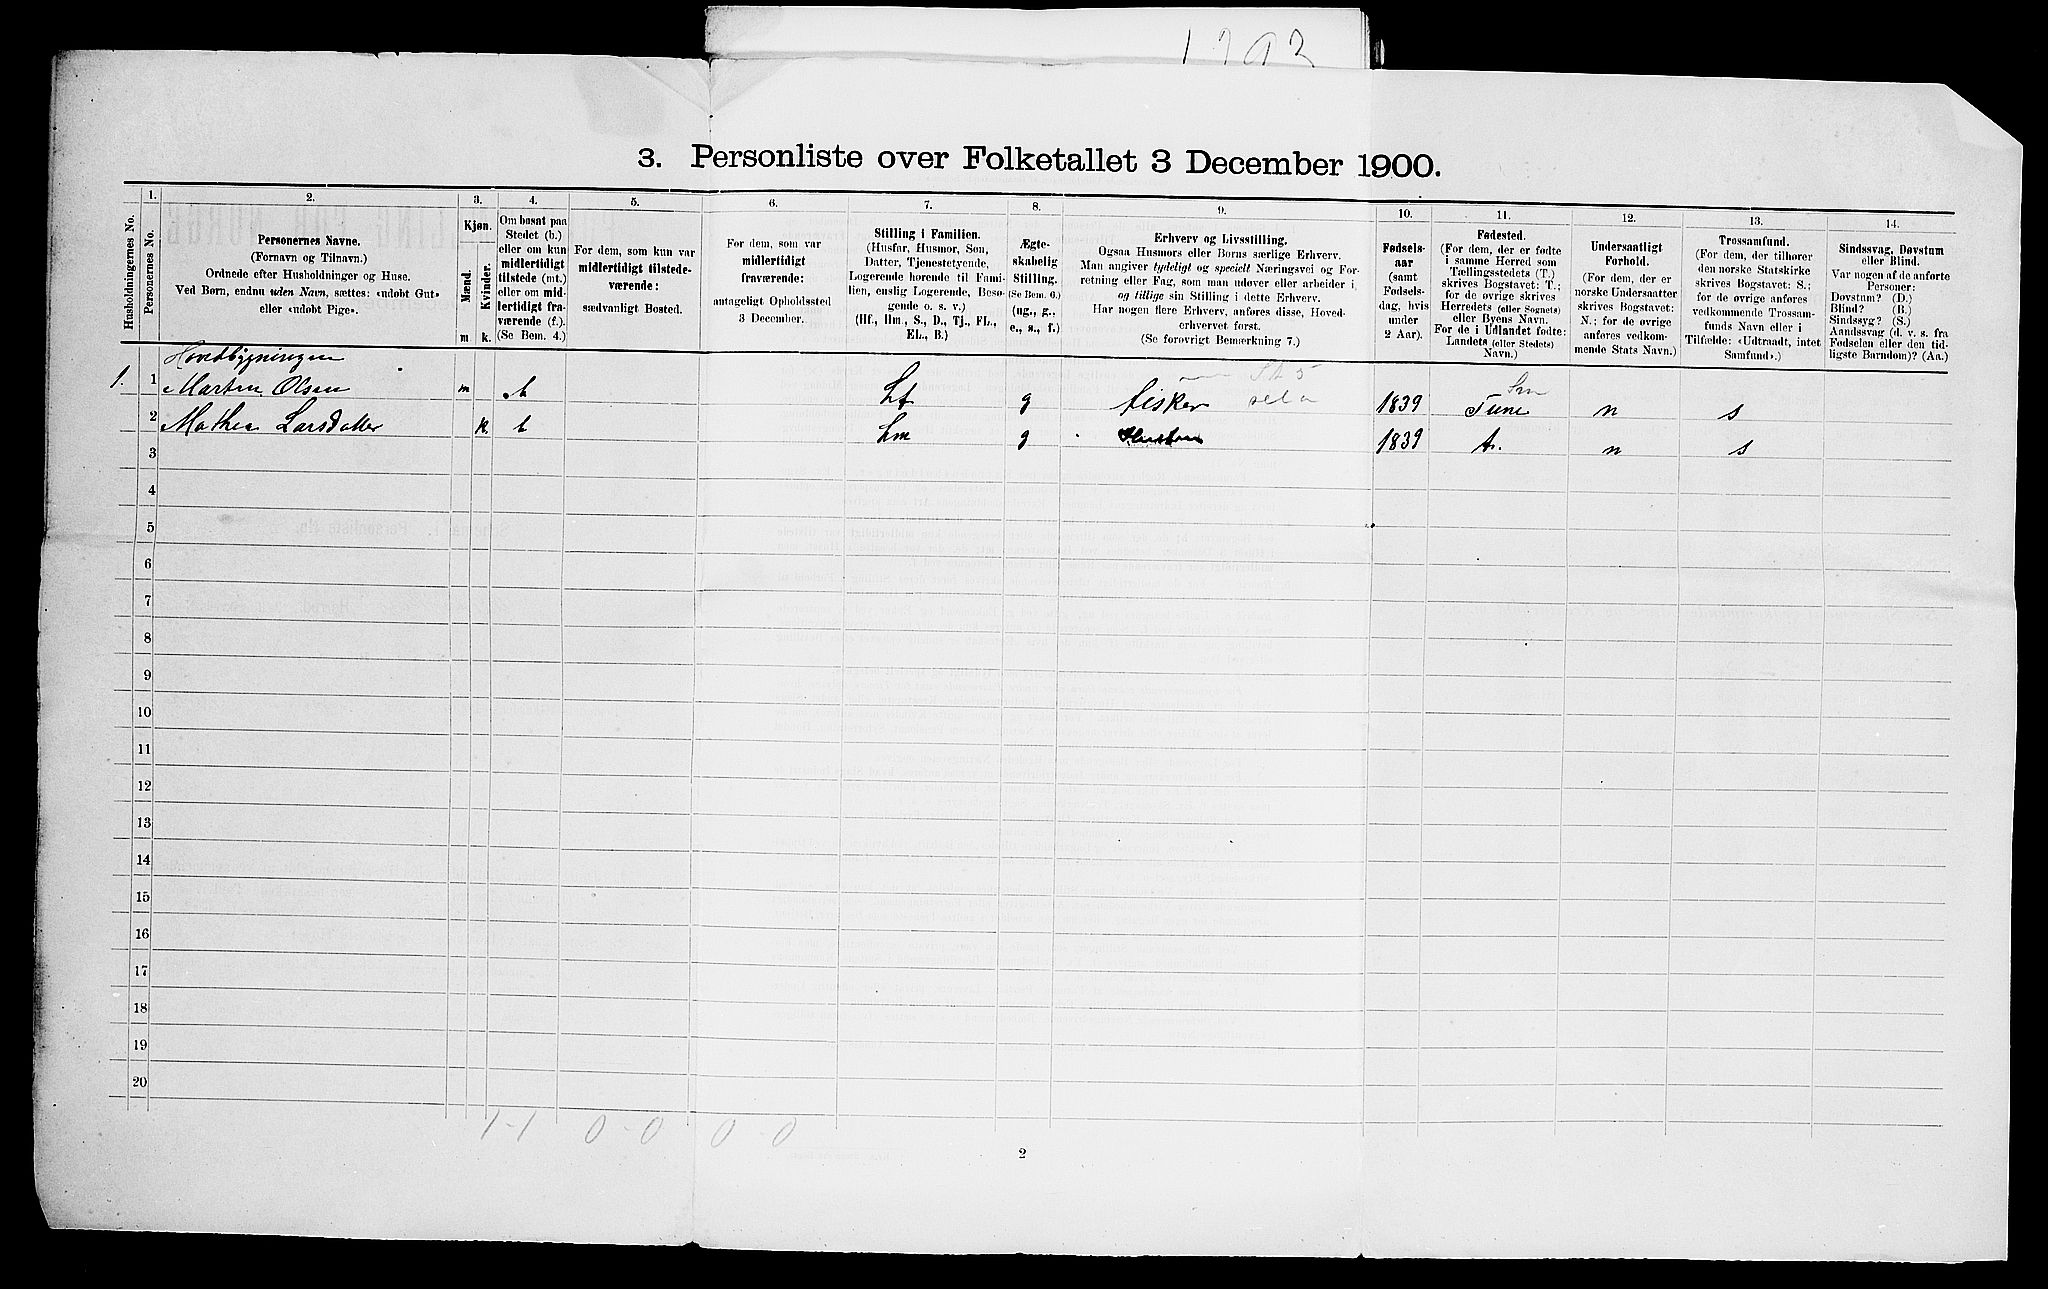 1902
3. Personliste over Folketallet 3 December 1900.
1. 2. 3. 4. 5. 6. 7. 8. 9. 10. 11. 12. 13. 14.
Husholdningernes No.
Personernes No.
Personernes Navne.
(Fornavn og Tilnavn.)
Ordnede efter Husholdninger og Huse.
Ved Børn, endnu uden Navn, sættes: «udøbt Gut»
eller «udøbt Pige».
Kjøn.
Mænd.
Kvinder.
m k.
Om bosat paa
Stedet (b.)
eller om kun
midlertidigt
tilstede (mt.)
eller om mid-
lertidigt fra-
værende (f.).
(Se Bem. 4.)
For dem, som kun var
midlertidigt tilstede-
værende:
sædvanligt Bosted.
For dem, som var
midlertidigt
fraværende:
antageligt Opholdssted
3 December.
Stilling i Familien.
(Husfar, Husmor, Søn,
Datter, Tjenestetyende,
Logerende hørende til Fami-
lien, enslig Logerende, Besø-
gende o. s. v.)
(Hf., Hm., S., D., Tj., FL.,
EL., B.)
Ægte-
skabelig
Stilling.
(Se Bem. 6.)
(ug., g.,
e., s., f.)
Erhverv og Livsstilling.
Ogsaa Husmors eller Børns særlige Erhverv.
Man angiver tydeligt og specielt Næringsvei og For-
retning eller Fag, som man udøver eller arbeider i,
og tillige sin Stilling i dette Erhverv.
Har nogen flere Erhverv, anføres disse, Hoved-
erhvervet først.
(Se forøvrigt Bemærkning 7.)
Fødsels-
aar
(samt
Fødsels-
dag, hvis
under
2 Aar).
Fødested.
(For dem, der er fødte
i samme Herred som
Tællingsstedets (T.)
skrives Bogstavet: T.;
for de øvrige skrives
Herredets (eller Sognets)
eller Byens Navn.
For de i Udlandet fødte:
Landets (eller Stedets)
Navn.)
Undersaatligt
Forhold.
(For dem, der er
norske Undersaatter
skrives Bogstavet:
N.; for de øvrige
anføres vedkom-
mende Stats Navn.)
Trossamfund.
(For dem, der tilhører
den norske Statskirke
skrives Bogstavet: S.;
for de øvrige anføres
vedkommende Trossam-
funds Navn eller i
Tilfælde: «Udtraadt, intet
Samfund».)
Sindssvag, Døvstum
eller Blind.
Var nogen af de anførte
Personer:
Døvstum? (D.)
Blind? (B.)
Sindssyg? (S.)
Aandssvag (d. v. s. fra
Fødselen eller den tid-
ligste Barndom)? (Aa.)
Hovedbygningen
1. 1 Marten Olsen m b hf g fisker 1839 Tune n s
2 Mathea Larsdatter k. b hm g 1839 t. n s
3
4
5
6
7
8
9
10
11
12
13
14
15
16
17
18
19
20
1-1 0-0 0-0
2